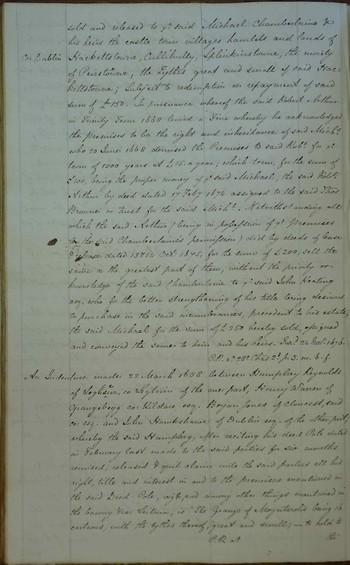 sold and released to yᵉ said Michael Chamberlaine &
his heirs the castle town villages hamlets and lands of
Co. Dublin Hackettstowne, Collibully, Splinkinstowne, the moiety
of Pierstowne, the Tythes great and small of said Hac-
kettstowne; Subject to redemption on repayment of said
sum of £150. In pursuance whereof the said Robert Arthur
in Trinity Term 1668 levied a Fine whereby he acknowledged
the premises to be the right and inheritance of said Michˡ.
who 20 June 1668 demised the Premises to said Robᵗ. for a
term of 1000 years at a year; which term, for the sum of
being the proper money of yᵉ said Michael, the said Robᵗ.
Arthur by deed dated 17 Feby 1674 assigned to the said
Browne in trust for the said Michˡ. Notwithstanding all
which the said Arthur being in possession of yᵉ Premises
by the said Chamberlaine's permission, did by deeds of Lease
& Release dated Octʳ. 1675, for the sum of £200, sell the
same or the greatest part of them, without the privity or
knowledge of the said Chamberlaine to yᵉ said John Keating
esq. who for the better strengthening of his title being desirous
to purchase in the said incumbrances, precedent to his estate,
the said Michael for the sum of £250 hereby sold, assigned
and conveyed the same to him and his heirs. Dat. 1676.
An Indenture made 22 March 1658 between Humphrey Reynolds
of co. Leytrim of the one part, Henry Warren of
Grangebegg co. Kildare esq. Bryan Jones of said
co. esq. and John of Dublin esq. of the other part;
whereby the said Humphrey, after reciting his deed Pole dated
in February last made to the said parties for six months
remised, released & quit claime unto the said parties all his
right, title and interest in and to the premises mentioned in
the said Deed Pole, and among other things mentioned in
is "The Grange of being 10
cartrons, with the tythes thereof, great and small; — to hold to
the